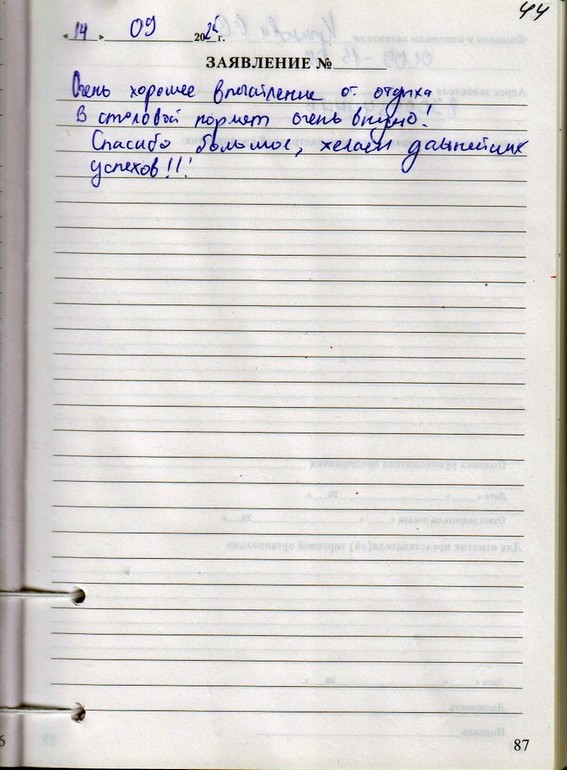 44
« 14 » 09 2025 г.
ЗАЯВЛЕНИЕ №
Очень хорошее впечатление от отдыха
В столовой кормят очень вкусно!
Спасибо большое, желаем дальнейших
успехов!!!
87